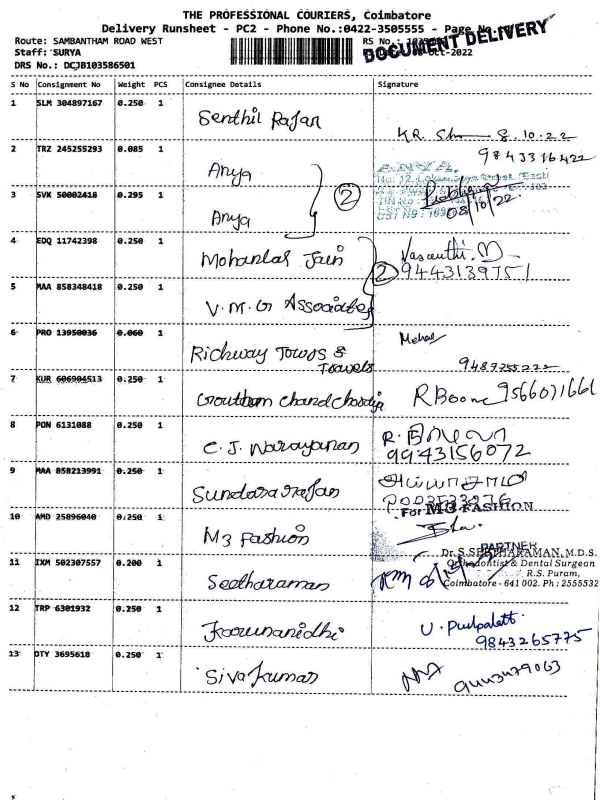 THE PROFESSIONAL COURIERS, Coimbatore
Delivery Runsheet - PC2 - Phone No.:0422-3505555 - Page No.
Route: SAMBANTHAM ROAD WEST
RS No.:
DOCUMENT DELIVERY
Staff: SURYA
DRS No.: DCJB103586501
S No Consignment No Weight PCS Consignee Details Signature
1 SLM 304897167 0.250 1 Senthil Rajan
KR. 8.10.22
9843316422
2 TRZ 245255293 0.085 1 Anya
ANYA
2
3 SVK 50002418 0.295 1 Anya
08/10/22
4 EDQ 11742398 0.250 1 Mohanlal Jain Vasanthi.
2 9443139751
5 MAA 858348418 0.250 1 V.M.G Associates
6 PRO 13950036 0.060 1 Richway Towrs &
Travels
9487255222
7 KUR 606904513 0.250 1 Goutham chand R Boone 9566071661
8 PON 6131088 0.250 1 C.J. Narayanan
9943156072
9 MAA 858213991 0.250 1 Sundararajan
10 AMD 25896040 0.250 1 M3 Fashion
For M3 FASHION
PARTNER
11 IXM 502307557 0.200 1 Seetharaman
Dr. S. SEETHARAMAN, M.D.S.
Orthodontist & Dental Surgeon
R.S. Puram,
Coimbatore - 641 002. Ph : 2555532
12 TRP 6301932 0.250 1 Karunanidhi
9843265775
13 DTY 3695618 0.250 1 Sivakumar
9443479063